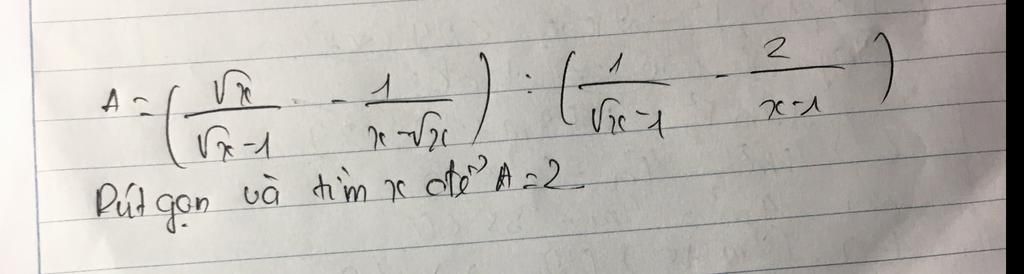 A = (√x / (√x - 1) - 1 / (x - √x)) : (1 / (√x - 1) - 2 / (x - 1))
Rút gọn và tìm x để A = 2